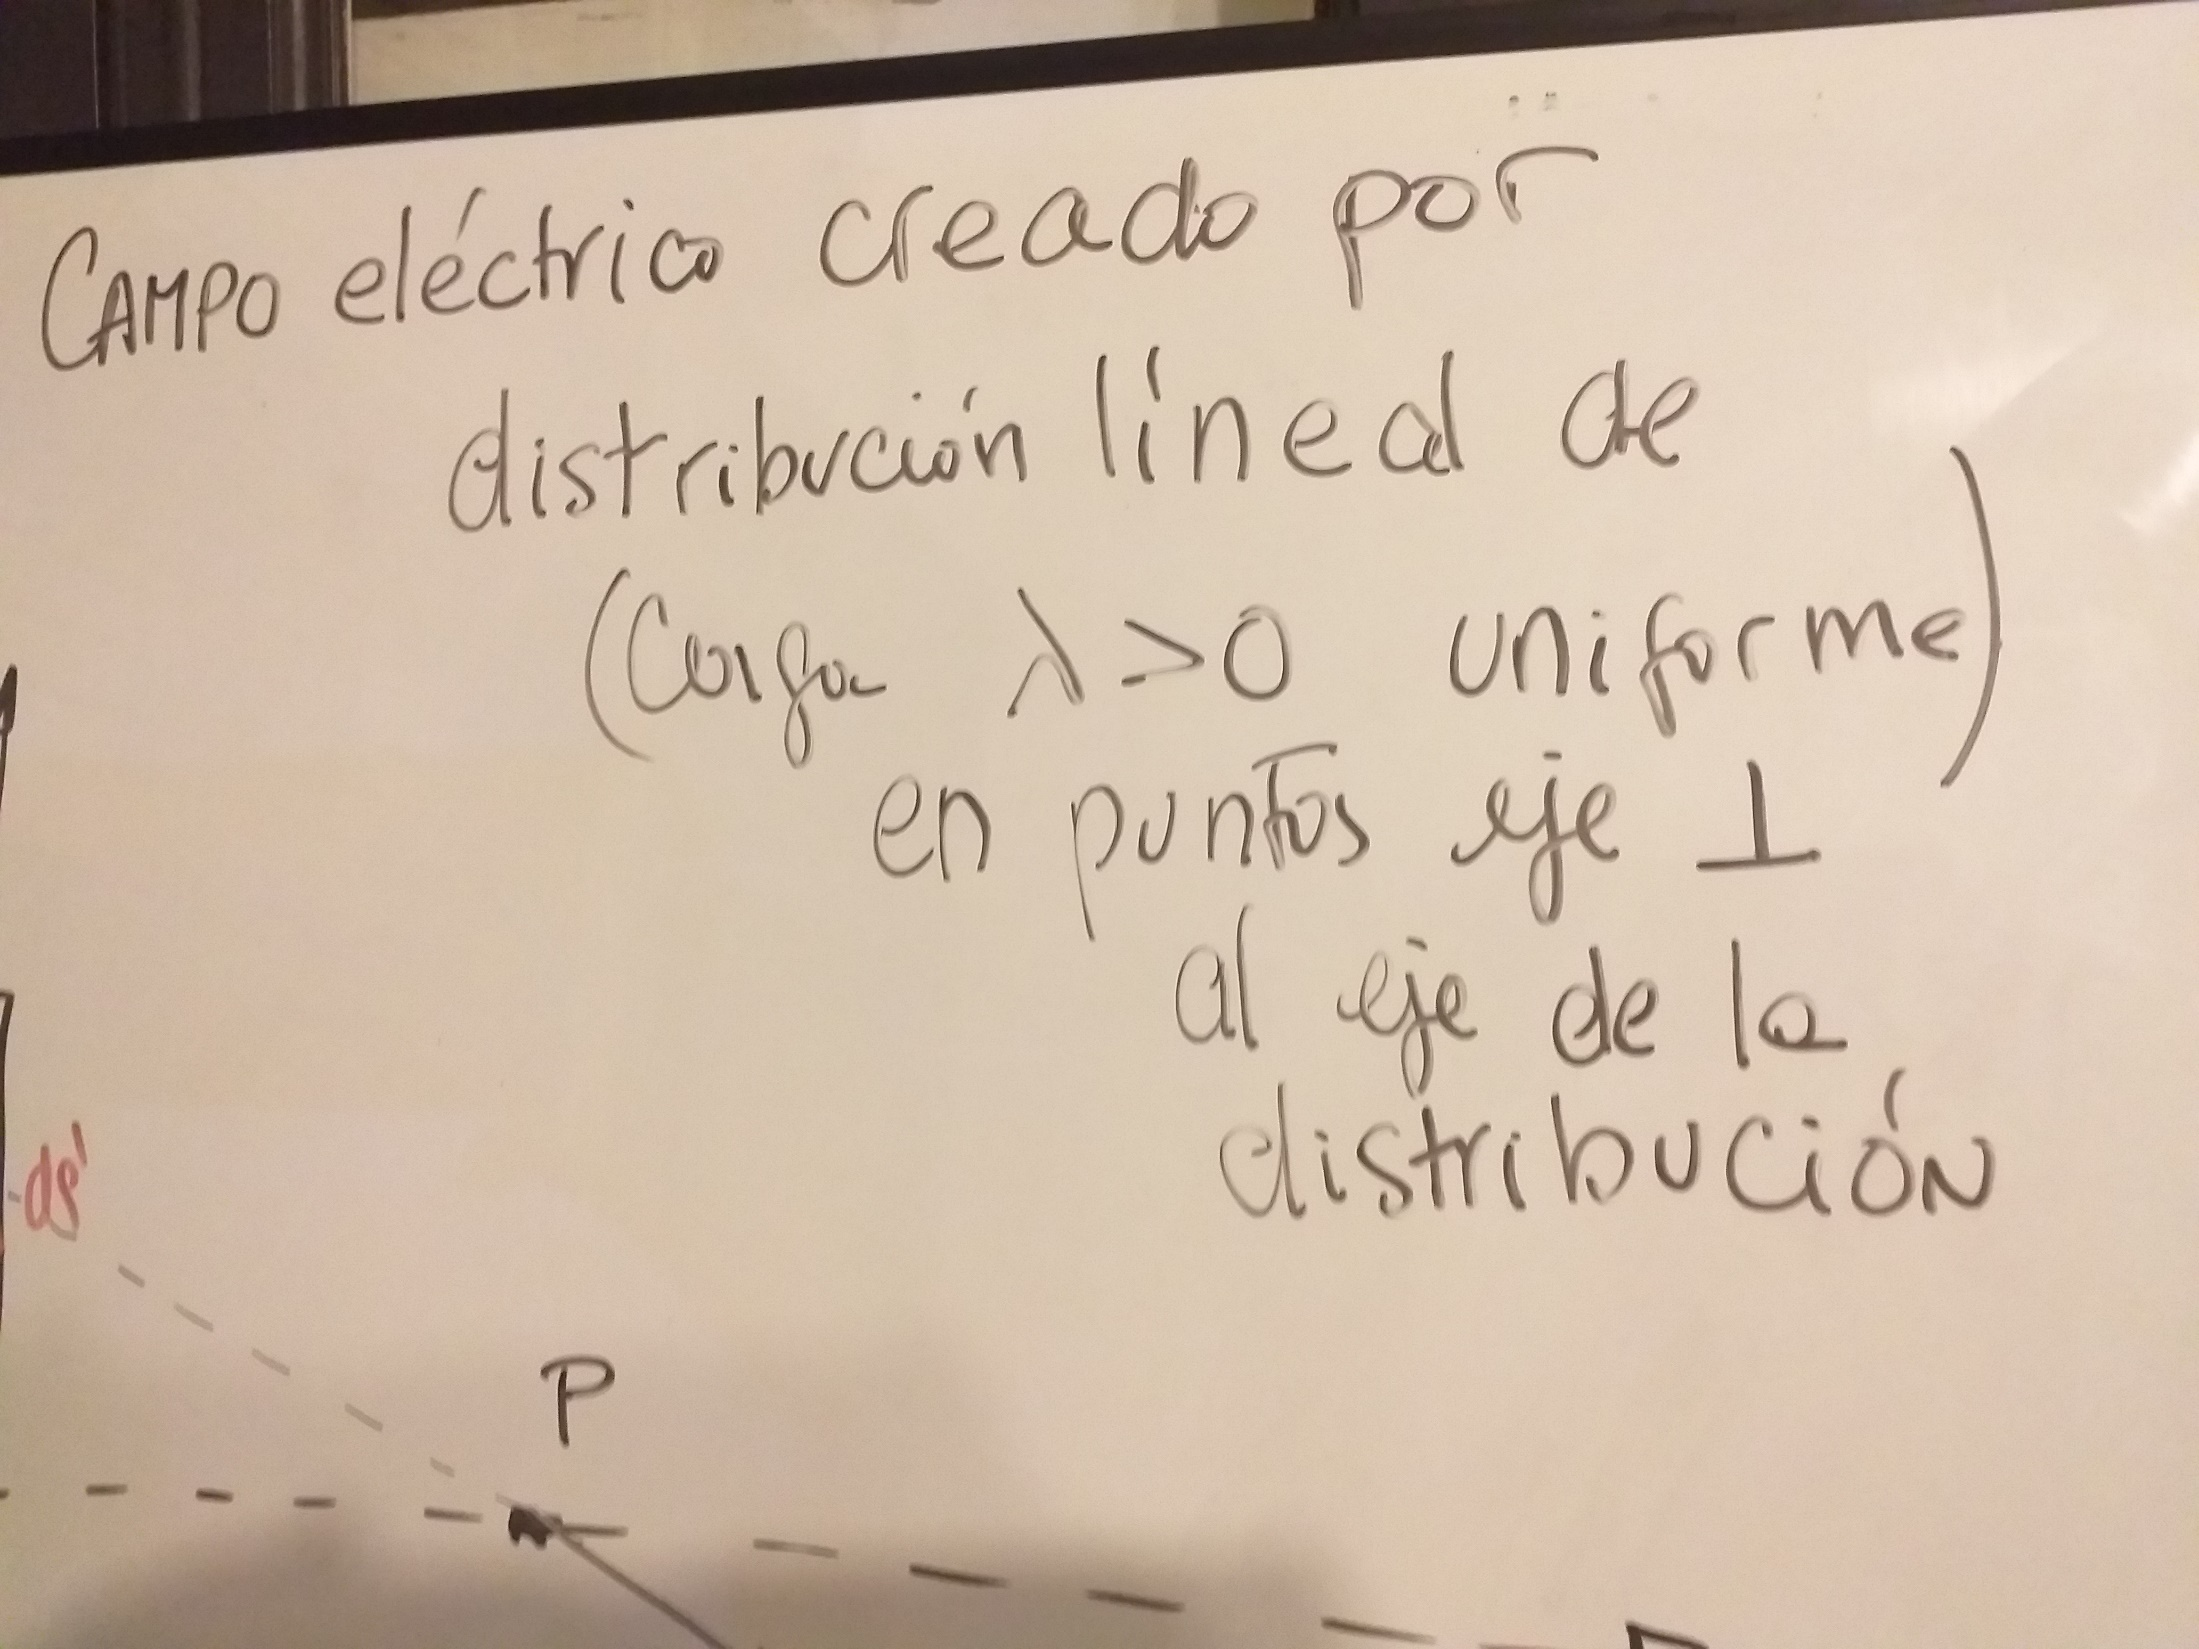 CAMPO eléctrico creado por
distribución líneal de
(Carga λ>0 uniforme)
en puntos eje ⊥
al eje de la
distribución
P